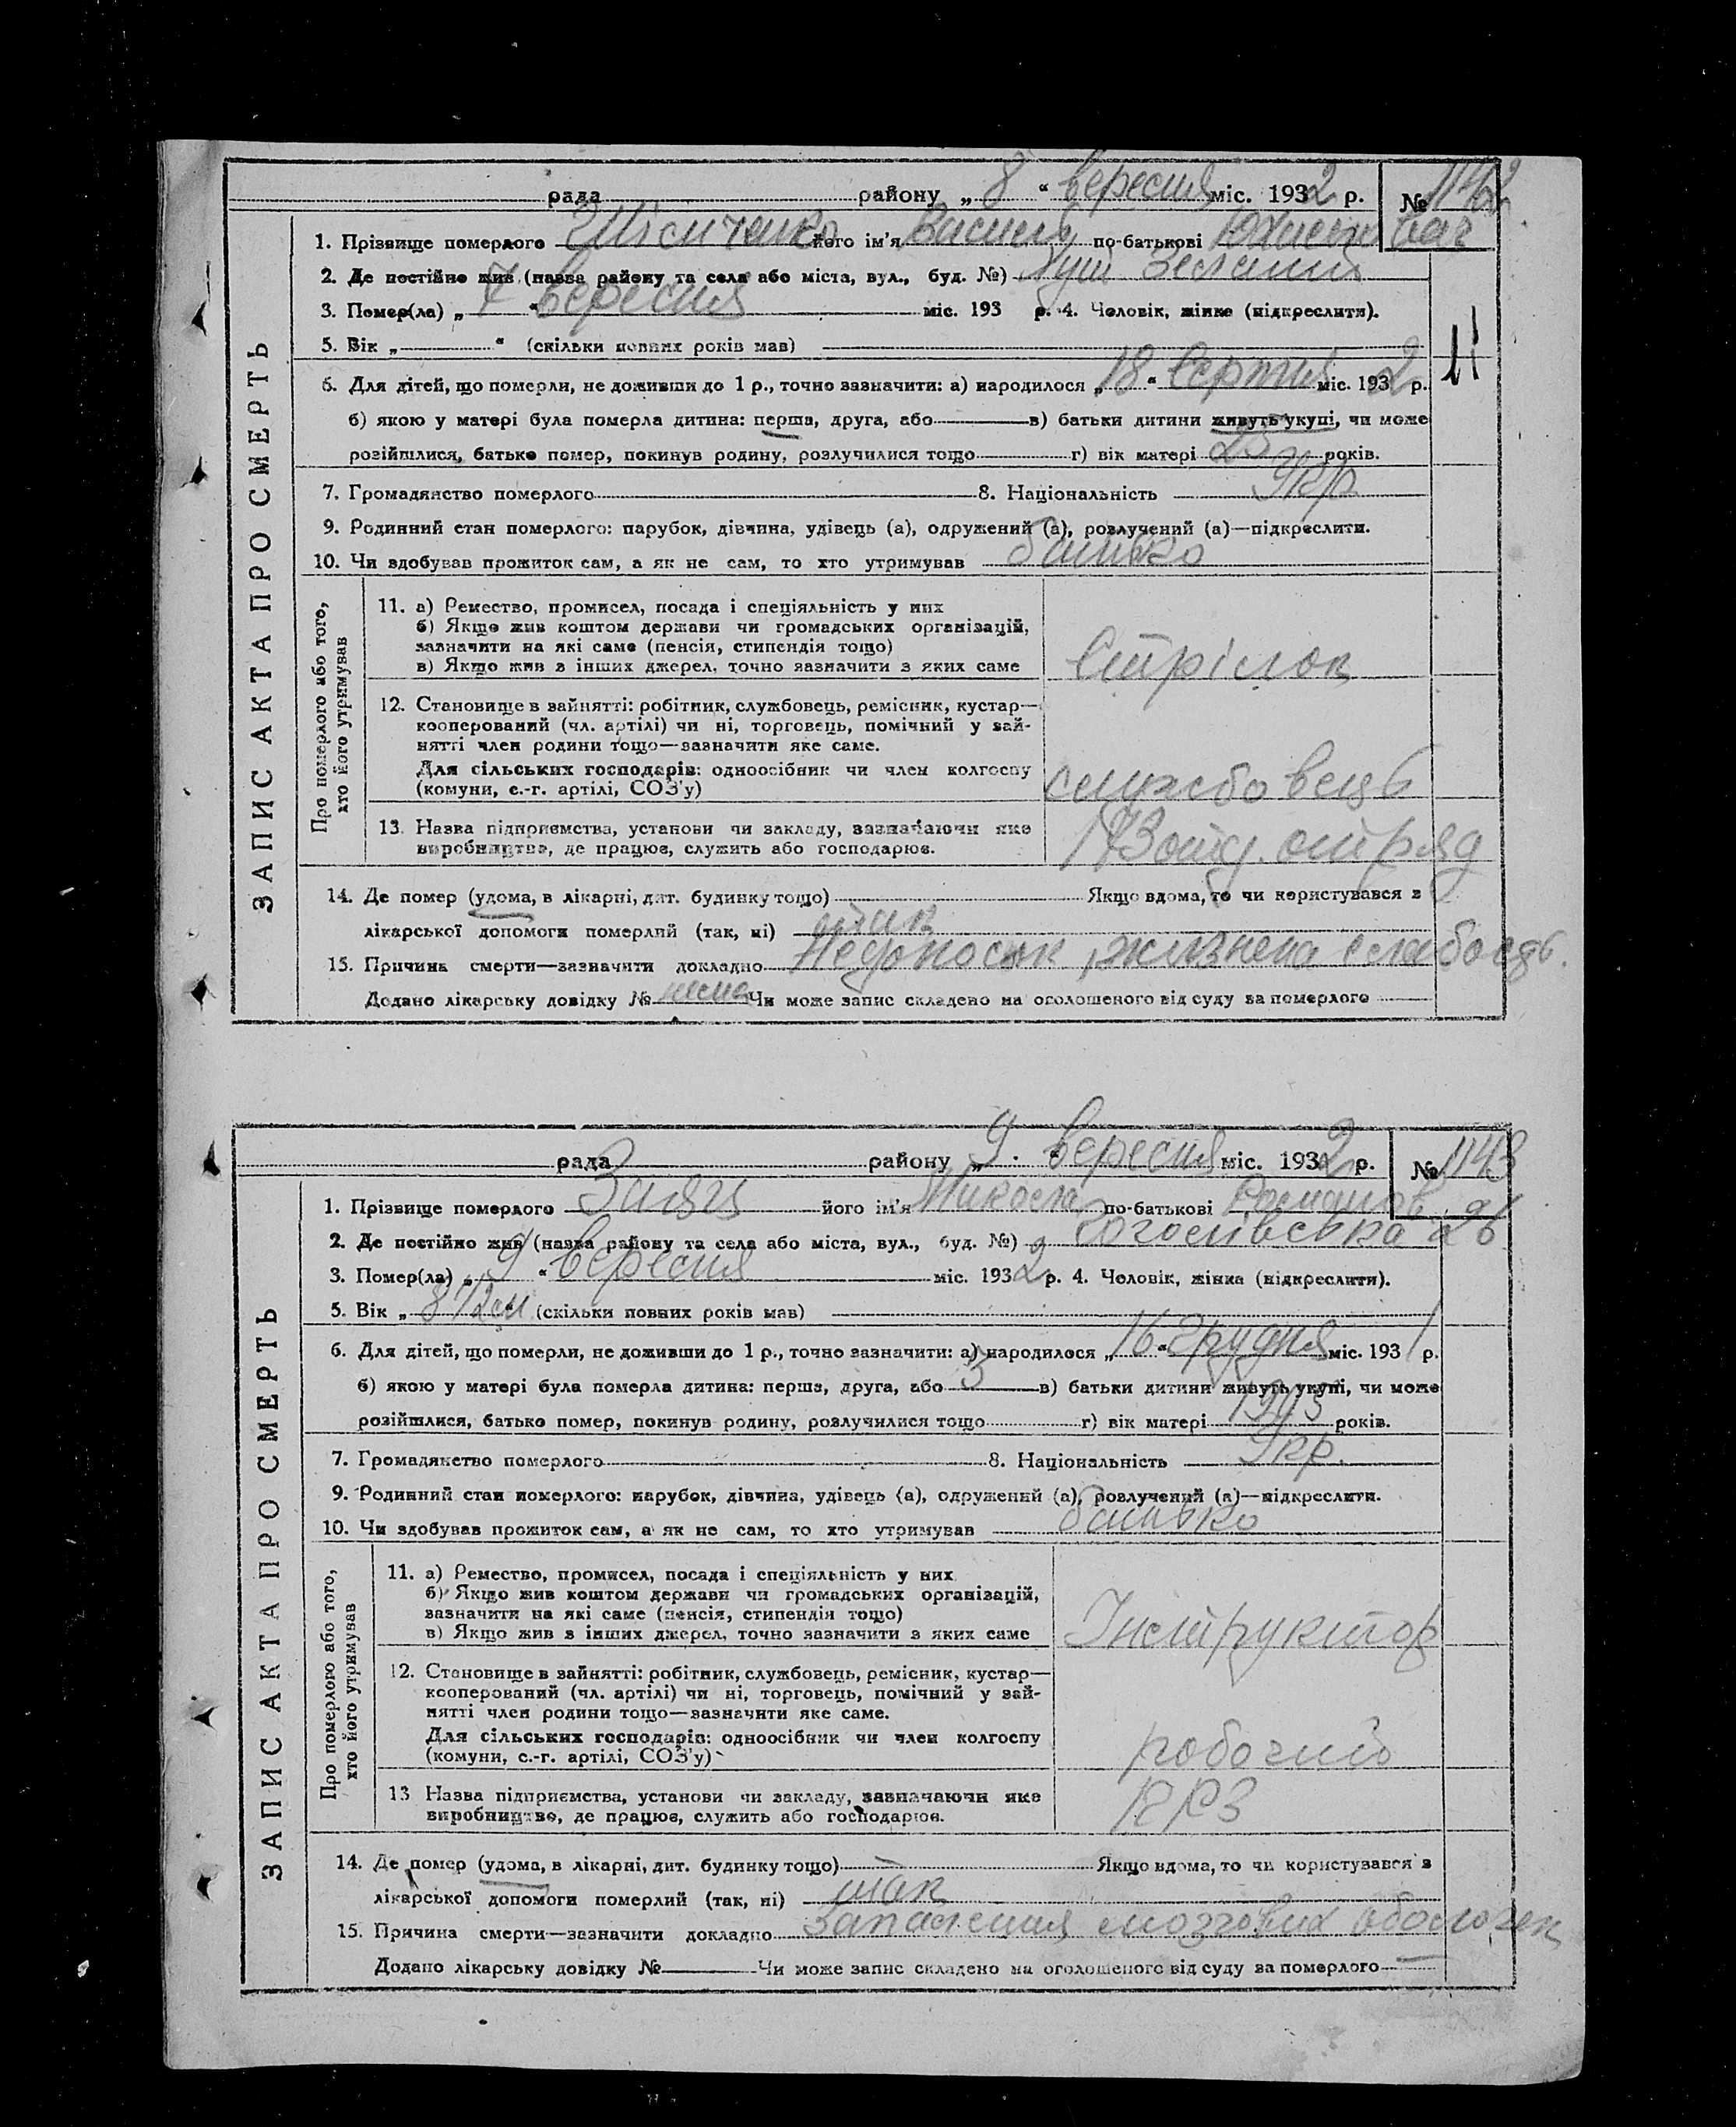 рада району „ 8 “ вересня міс. 1932 р. № 1142
1. Прізвище померлого його ім'я Василь по-батькові
2. Де постійно жив (назва району та села або міста, вул., буд. №)
3. Помер(ла) „ 7 “ вересня міс. 193 р. 4. Чоловік, жінка (підкреслити).
5. Вік „ “ (скільки повних років мав)
6. Для дітей, що померли, не доживши до 1 р., точно зазначити: а) народилося „ 18 “ серпня міс. 1932 р.
б) якою у матері була померла дитина: перша, друга, або в) батьки дитини живуть укупі, чи може
розійшлися, батько помер, покинув родину, розлучилися тощо г) вік матері 25 років.
7. Громадянство померлого 8. Національність Укр
9. Родинний стан померлого: парубок, дівчина, удівець (а), одружений (а), розлучений (а)—підкреслити.
10. Чи здобував прожиток сам, а як не сам, то хто утримував батько
ЗАПИС АКТА ПРО СМЕРТЬ
Про померлого або того,
хто його утримував
11. а) Ремество, промисел, посада і спеціяльність у них
б) Якщо жив коштом держави чи громадських організацій,
зазначити на які саме (пенсія, стипендія тощо)
в) Якщо жив з інших джерел, точно зазначити з яких саме
Стрілок
12. Становище в зайнятті: робітник, службовець, ремісник, кустар—
кооперований (чл. артілі) чи ні, торговець, помічний у зай-
нятті член родини тощо—зазначити яке саме.
Для сільських господарів: одноосібник чи член колгоспу
(комуни, с.-г. артілі, СОЗ'у)
службовець
13. Назва підприємства, установи чи закладу, зазначаючи яке
виробництво, де працює, служить або господарює.
отряд
14. Де помер (удома, в лікарні, дит. будинку тощо) Якщо вдома, то чи користувався з
лікарської допомоги померлий (так, ні) так
15. Причина смерти—зазначити докладно Недоносок, жизнена слабость.
Додано лікарську довідку № нема Чи може запис складено на оголошеного від суду за померлого
рада району „ 9 “ вересня міс. 1932 р. № 1143
1. Прізвище померлого Заяць його ім'я Микола по-батькові Романов.
2. Де постійно жив (назва району та села або міста, вул., буд. №) 26
3. Помер(ла) „ 9 “ вересня міс. 1932 р. 4. Чоловік, жінка (підкреслити).
5. Вік „ 8 1/2 м “ (скільки повних років мав)
6. Для дітей, що померли, не доживши до 1 р., точно зазначити: а) народилося „ 16 “ грудня міс. 1931 р.
б) якою у матері була померла дитина: перша, друга, або 3 в) батьки дитини живуть укупі, чи може
розійшлися, батько помер, покинув родину, розлучилися тощо г) вік матері років.
7. Громадянство померлого 8. Національність Укр.
9. Родинний стан померлого: парубок, дівчина, удівець (а), одружений (а), розлучений (а)—підкреслити.
10. Чи здобував прожиток сам, а як не сам, то хто утримував батько
ЗАПИС АКТА ПРО СМЕРТЬ
Про померлого або того,
хто його утримував
11. а) Ремество, промисел, посада і спеціяльність у них
б) Якщо жив коштом держави чи громадських організацій,
зазначити на які саме (пенсія, стипендія тощо)
в) Якщо жив з інших джерел, точно зазначити з яких саме
Інструктор
12. Становище в зайнятті: робітник, службовець, ремісник, кустар—
кооперований (чл. артілі) чи ні, торговець, помічний у зай-
нятті член родини тощо—зазначити яке саме.
Для сільських господарів: одноосібник чи член колгоспу
(комуни, с.-г. артілі, СОЗ'у)
робочий
13 Назва підприємства, установи чи закладу, зазначаючи яке
виробництво, де працює, служить або господарює.
14. Де помер (удома, в лікарні, дит. будинку тощо) Якщо вдома, то чи користувався з
лікарської допомоги померлий (так, ні) так
15. Причина смерти—зазначити докладно Запалення мозгових оболочек
Додано лікарську довідку № Чи може запис складено на оголошеного від суду за померлого